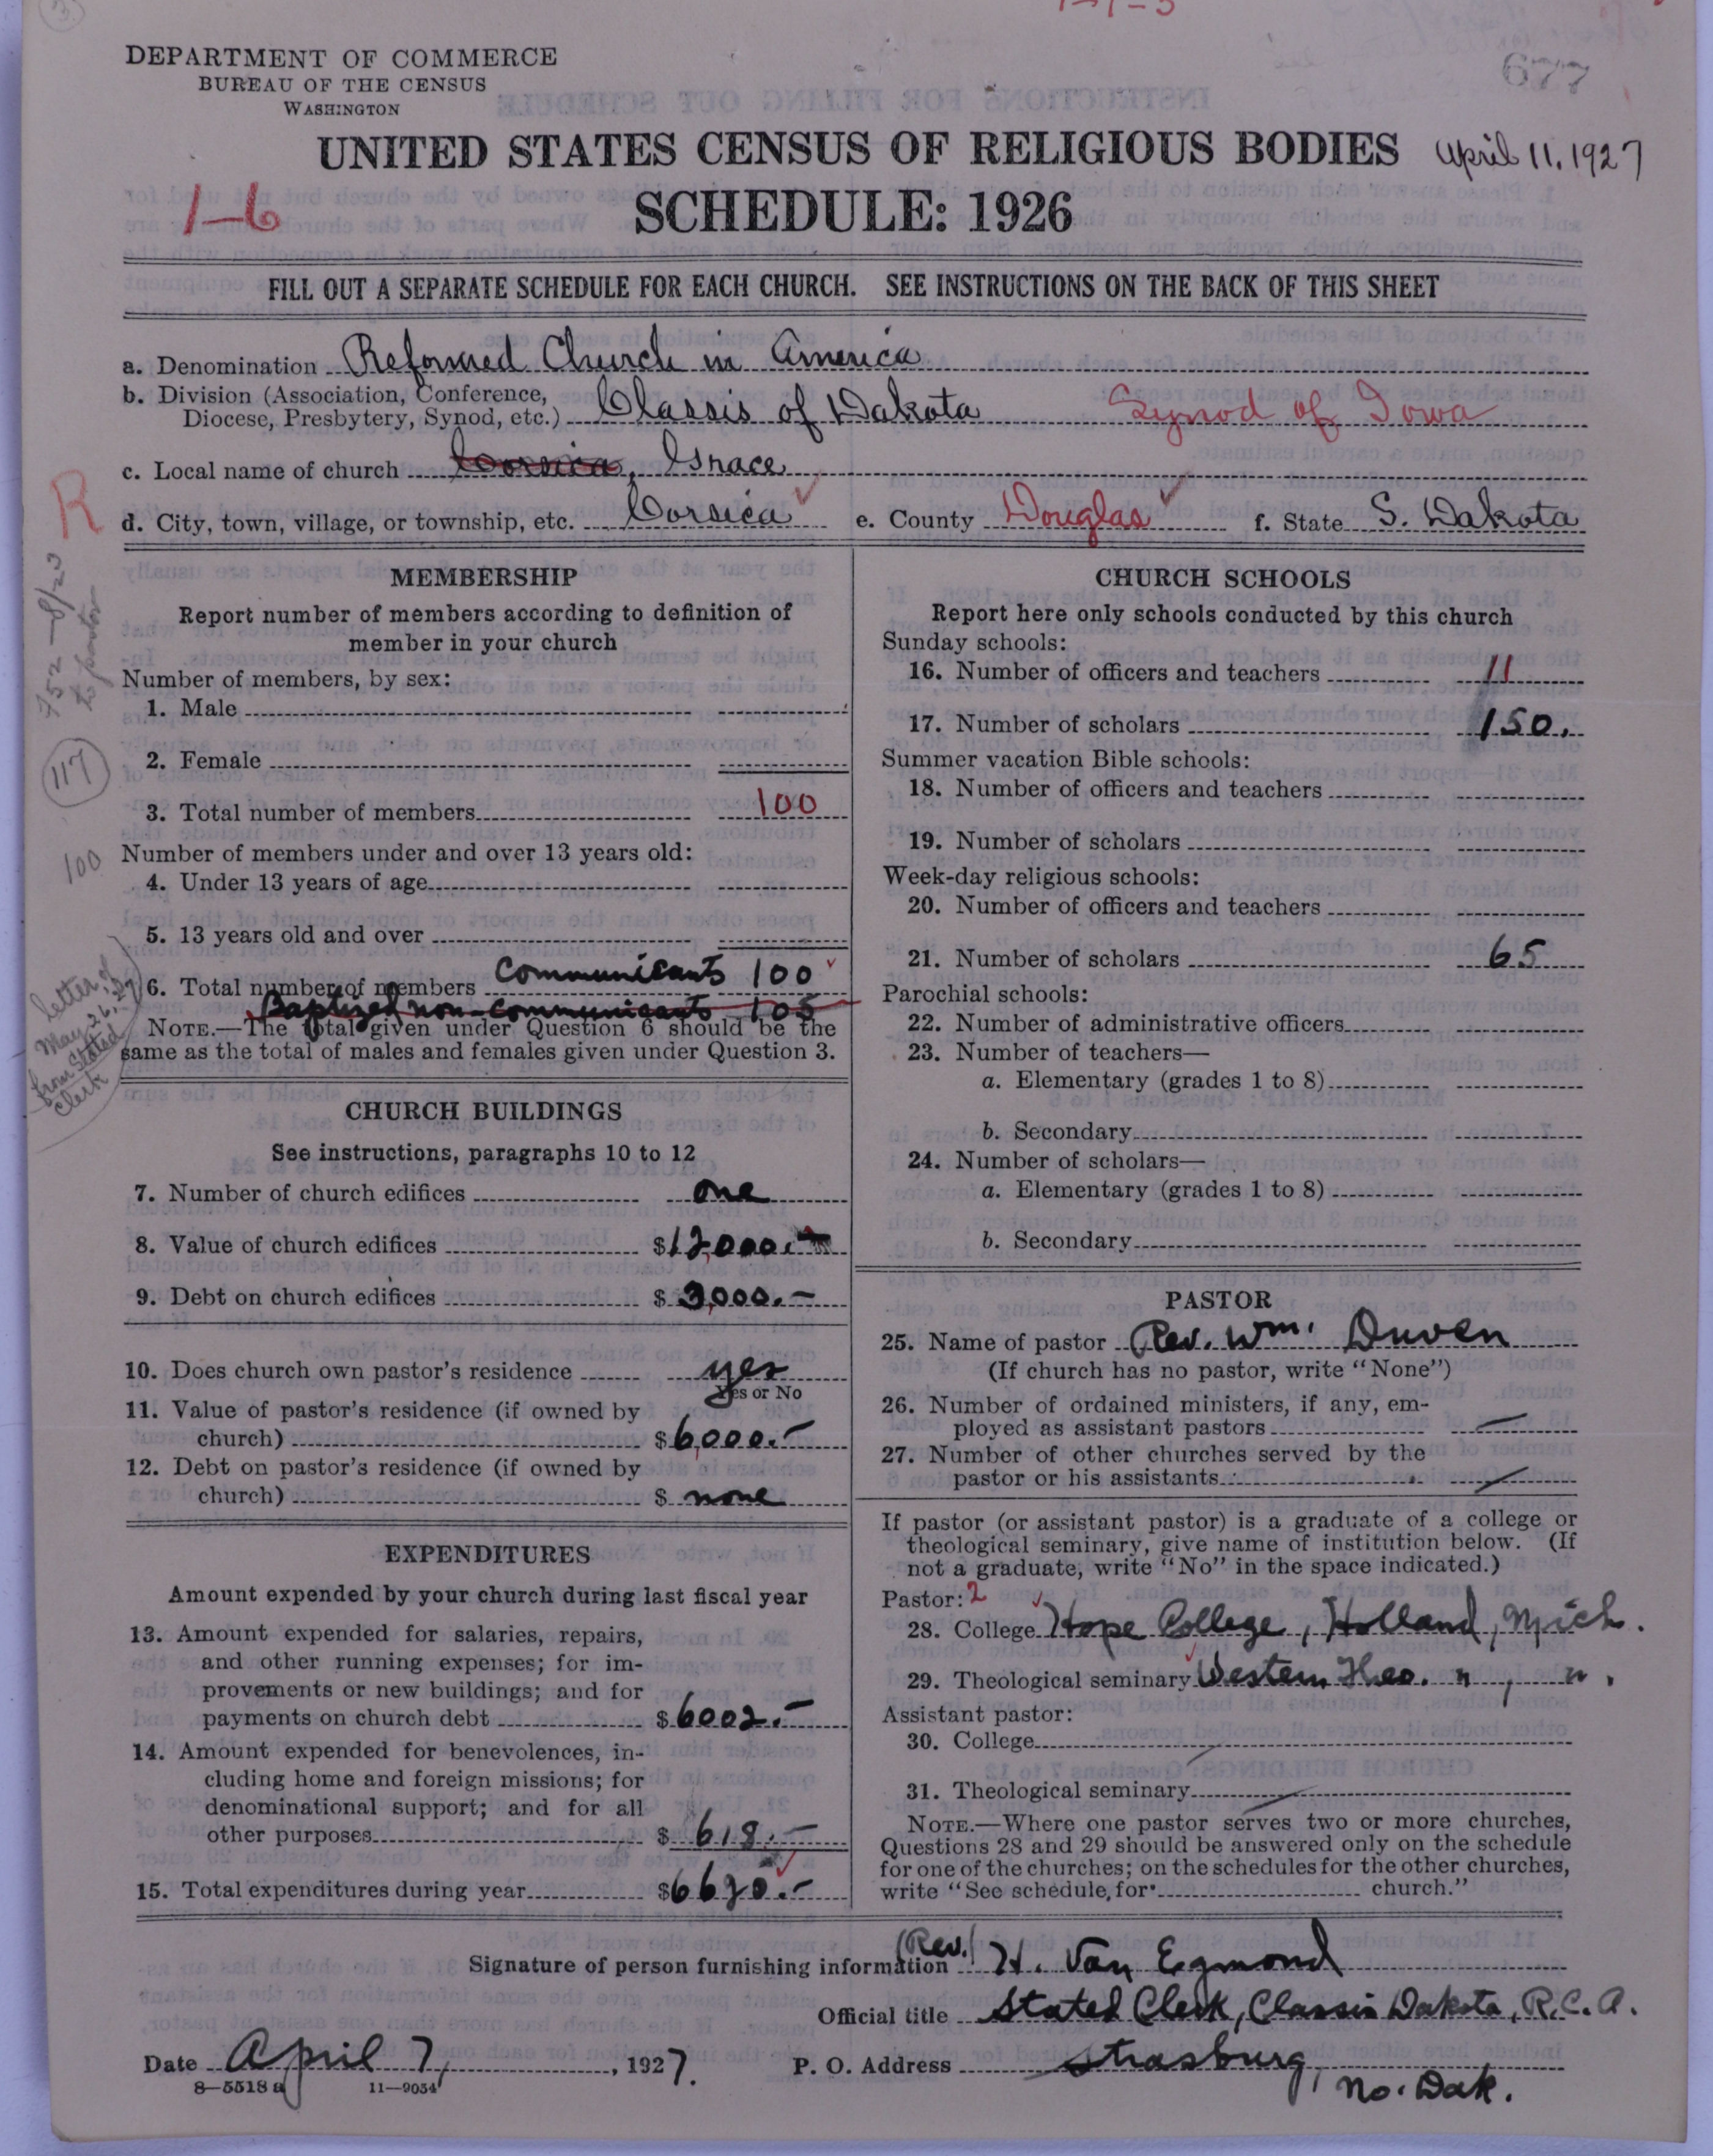 677
DEPARTMENT OF COMMERCE
BUREAU OF THE CENSUS
WASHINGTON
UNITED STATES CENSUS OF RELIGIOUS BODIES April 11, 1927
1-6 SCHEDULE: 1926
FILL OUT A SEPARATE SCHEDULE FOR EACH CHURCH. SEE INSTRUCTIONS ON THE BACK OF THIS SHEET
a. Denomination Reformed Church in America
b. Division (Association, Conference,
Diocese, Presbytery, Synod, etc.) Classis of Dakota Synod of Iowa
c. Local name of church Corsica, Grace
R
d. City, town, village, or township, etc. Corsica e. County Douglas f. State S. Dakota
MEMBERSHIP
Report number of members according to definition of
member in your church
Number of members, by sex:
1. Male
2. Female
117
3. Total number of members 100
100
Number of members under and over 13 years old:
4. Under 13 years of age
5. 13 years old and over
6. Total number of members Communicants 100
Baptized non-communicants 105
letter of
May 26, 27
from Stated
Clerk
NOTE.—The total given under Question 6 should be the
same as the total of males and females given under Question 3.
CHURCH BUILDINGS
See instructions, paragraphs 10 to 12
7. Number of church edifices one
8. Value of church edifices $12,000.—
9. Debt on church edifices $ 3,000.—
10. Does church own pastor's residence yes
Yes or No
11. Value of pastor's residence (if owned by
church) $6,000.—
12. Debt on pastor's residence (if owned by
church) $ none
EXPENDITURES
Amount expended by your church during last fiscal year
13. Amount expended for salaries, repairs,
and other running expenses; for im-
provements or new buildings; and for
payments on church debt $6002.—
14. Amount expended for benevolences, in-
cluding home and foreign missions; for
denominational support; and for all
other purposes $ 618.—
15. Total expenditures during year $6620.—
CHURCH SCHOOLS
Report here only schools conducted by this church
Sunday schools:
16. Number of officers and teachers 11
17. Number of scholars 150.
Summer vacation Bible schools:
18. Number of officers and teachers
19. Number of scholars
Week-day religious schools:
20. Number of officers and teachers
21. Number of scholars 65
Parochial schools:
22. Number of administrative officers
23. Number of teachers—
a. Elementary (grades 1 to 8)
b. Secondary
24. Number of scholars—
a. Elementary (grades 1 to 8)
b. Secondary
PASTOR
25. Name of pastor Rev. Wm. Duven
(If church has no pastor, write "None")
26. Number of ordained ministers, if any, em-
ployed as assistant pastors —
27. Number of other churches served by the
pastor or his assistants —
If pastor (or assistant pastor) is a graduate of a college or
theological seminary, give name of institution below. (If
not a graduate, write "No" in the space indicated.)
Pastor: 2
28. College Hope College, Holland, Mich.
29. Theological seminary Western Theo. " , " .
Assistant pastor:
30. College
31. Theological seminary
NOTE.—Where one pastor serves two or more churches,
Questions 28 and 29 should be answered only on the schedule
for one of the churches; on the schedules for the other churches,
write "See schedule for church."
Signature of person furnishing information (Rev.) H. Van Egmond
Official title Stated Clerk, Classis Dakota, R.C.A.
Date April 7, 1927. P. O. Address Strasburg,
No. Dak.
8—5518 a 11—9054